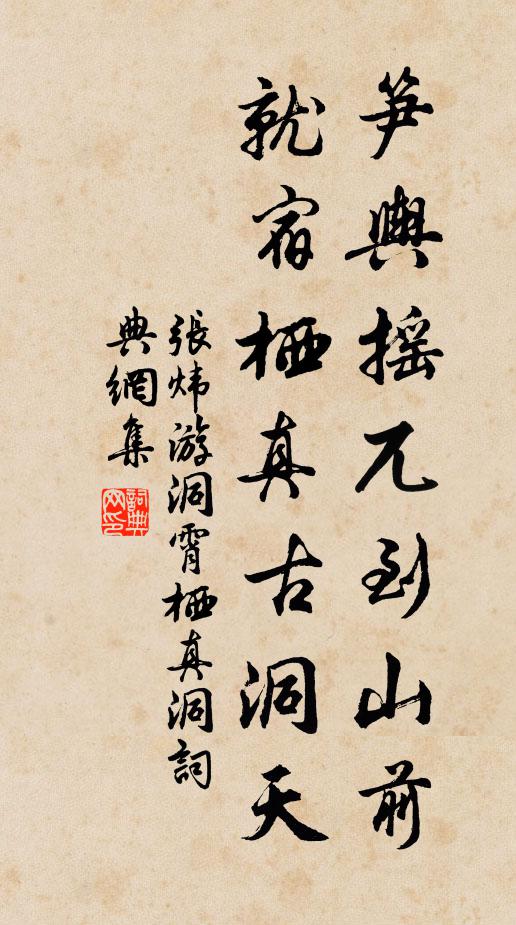 笋舆摇兀到山前
就宿栖真古洞天
張炜游洞霄栖真洞詞
典網集
詞典网印